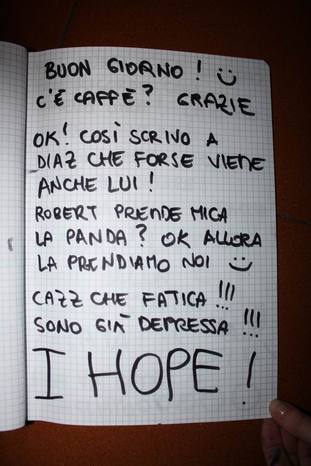 BUON GIORNO! ☺
C'È CAFFÈ? GRAZIE
OK! COSÌ SCRIVO A
DIAZ CHE FORSE VIENE
ANCHE LUI!
ROBERT PRENDE MICA
LA PANDA? OK ALLORA
LA PRENDIAMO NOI ☺
CAZZ CHE FATICA!!!
SONO GIÀ DEPRESSA!!!
I HOPE!